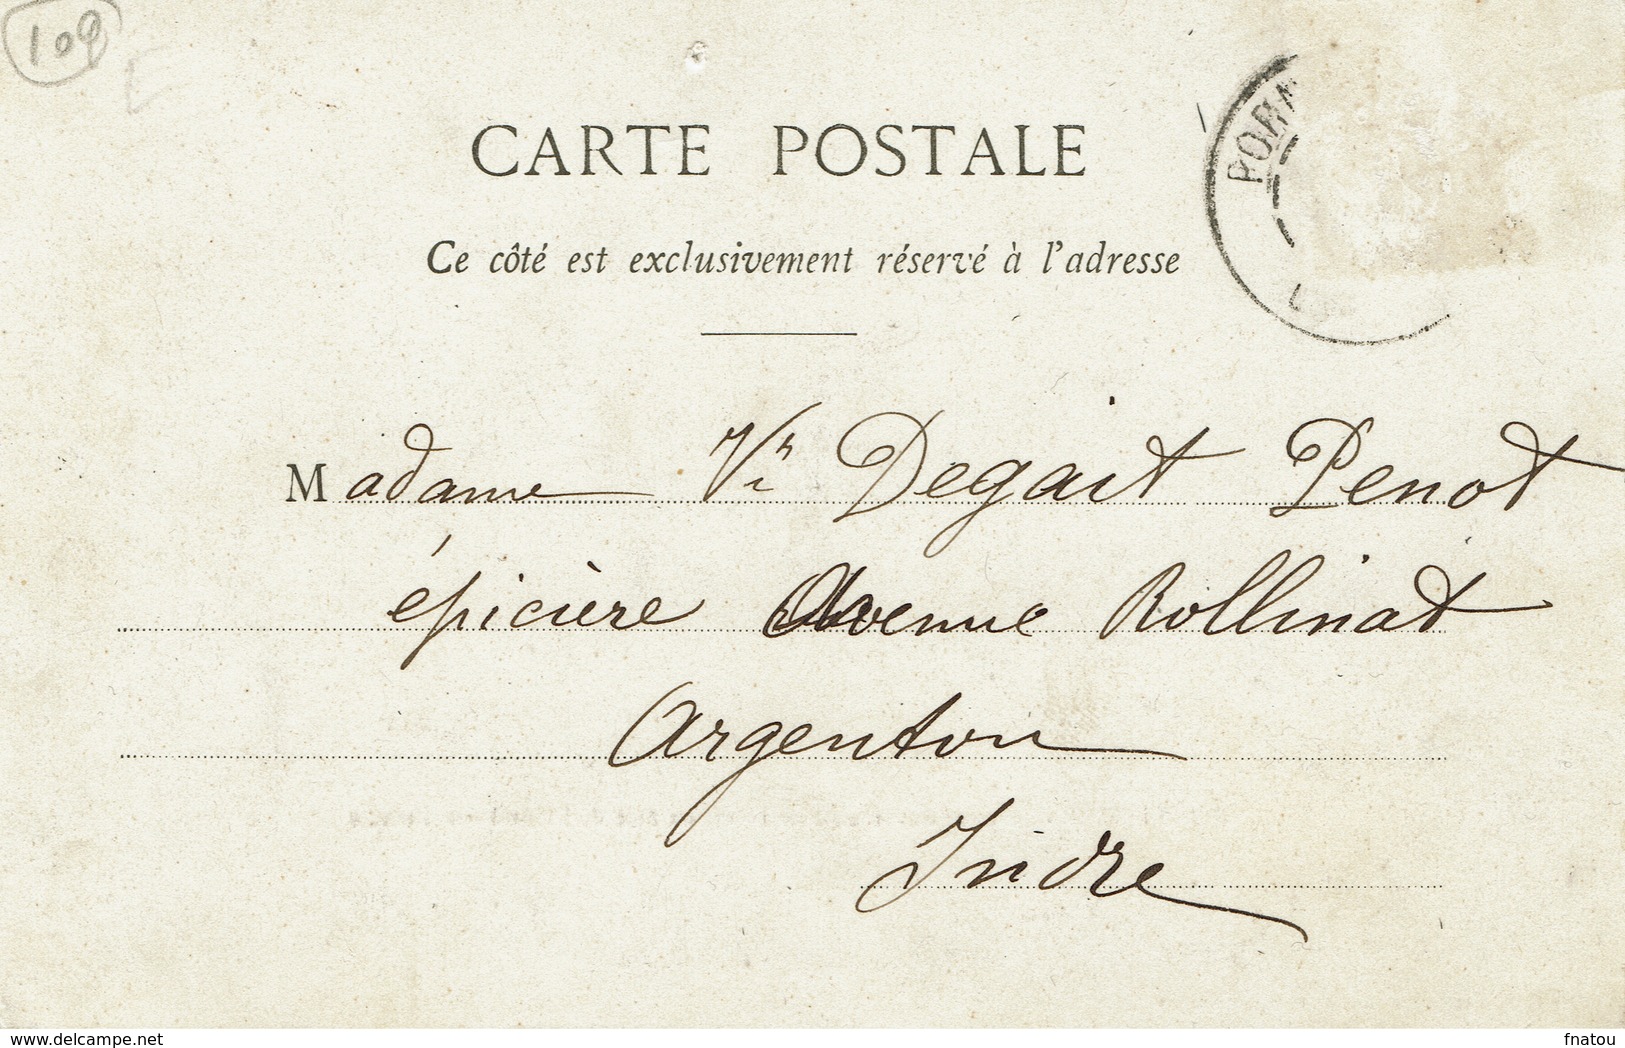 109
CARTE POSTALE
Ce côté est exclusivement réservé à l'adresse
Madame Vve Degait Penot
épicière Avenue Rollinat
Argenton
Indre
www.delcampe.net
fnatou